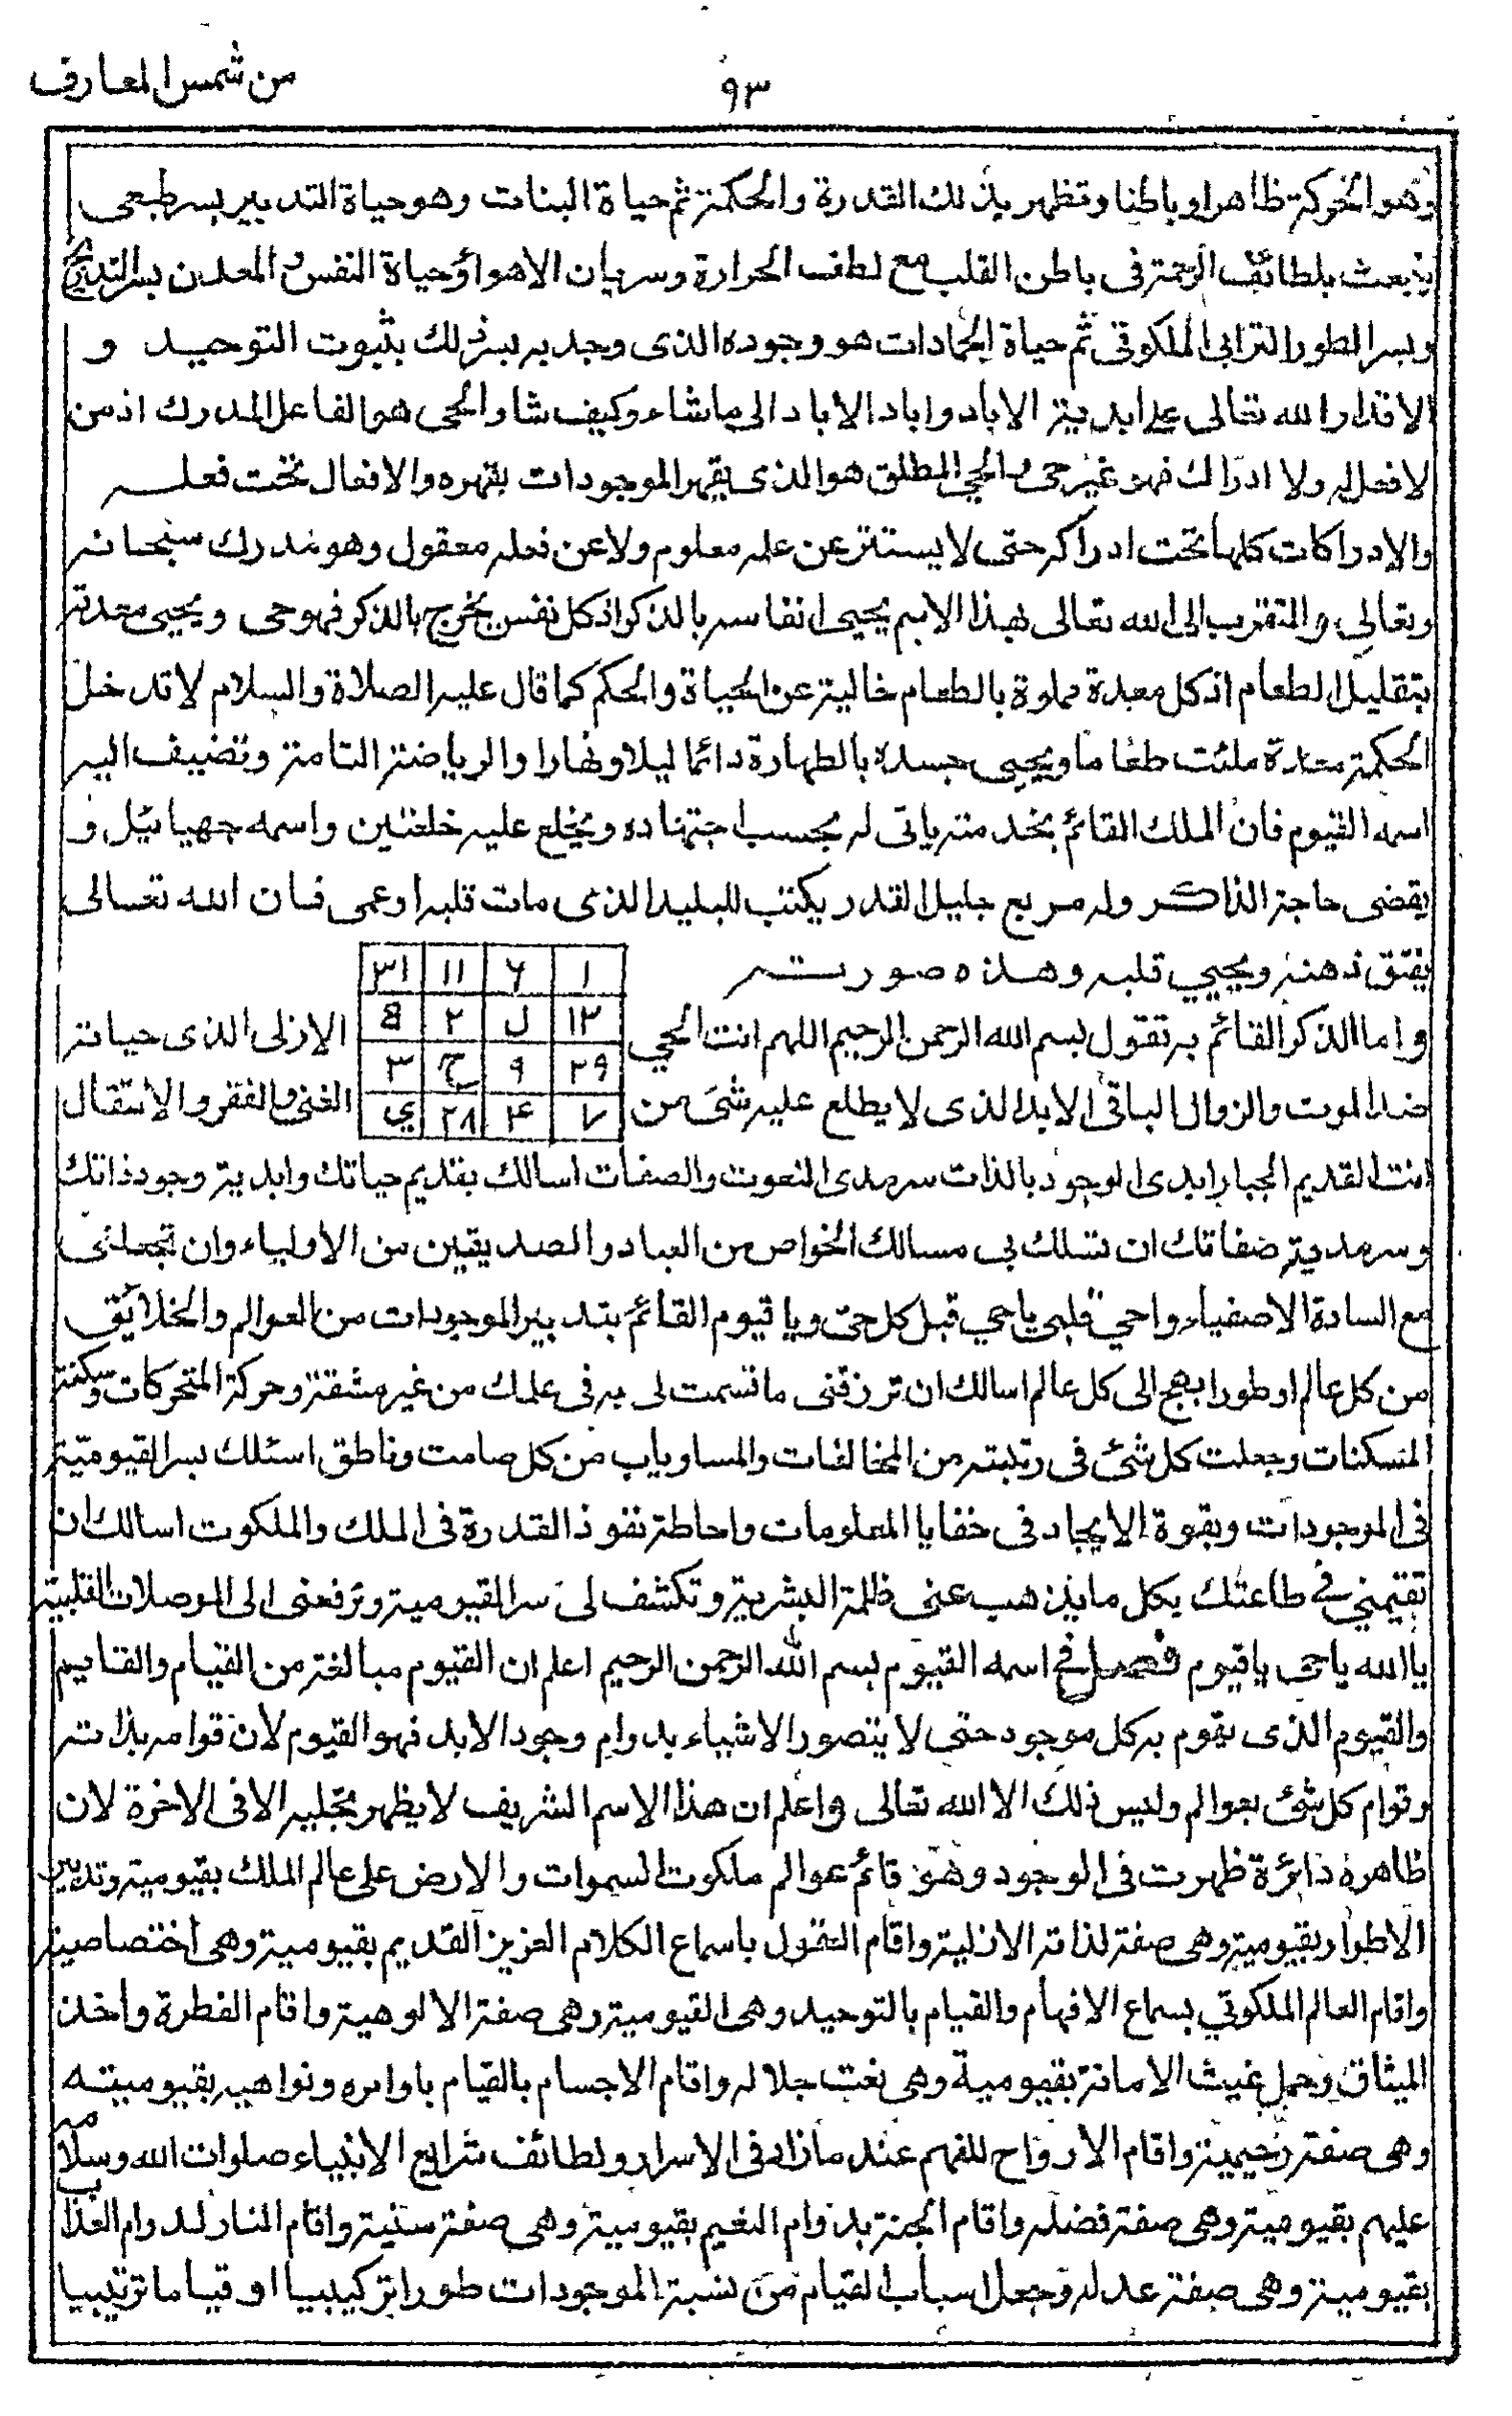 من شمس المعارف
٩٣
وهو الحركة ظاهرا وباطنا وتظهر بذلك القدرة والحكمة ثم حياة النبات وهو حياة التدبير بسر طبعى
ينبعث بلطائف الرحمة فى باطن القلب مع لطف الحرارة وسريان الاهواء وحياة النفس المعدن بسر التدريج
وبسر الطور الترابى الملكوتى ثم حياة الجمادات هو وجوده الذى وجد به بسر ذلك بثبوت التوحيد و
الاقدار الله تعالى على ابدية الاباد واباد الاباد الى ما شاء وكيف شاء والحى هو الفاعل المدرك اذ من
لا فعل له ولا ادراك فهو غير حى والحي المطلق هو الذى يقهر الموجودات بقهره والافعال تحت فعله
والادراكات كلها تحت ادراكه حتى لا يستتر عن علمه معلوم ولا عن فعله معقول وهو مدرك سبحانه
وتعالى والتقرب الى الله تعالى بهذا الاسم يحيى انفاسه بالذكر اذ كل نفس يخرج بالذكر فهو حى ويحيى معدته
بتقليل الطعام اذ كل معدة مملوة بالطعام خالية عن الحياة والحكم كما قال عليه الصلاة والسلام لا تدخل
الحكمة معدة ملئت طعاما ويحيى جسده بالطهارة دائما ليلا ونهارا والرياضة التامة وتضييف اليه
اسمه القيوم فان الملك القائم بخدمته ياتى له بحسب اجتهاده ويخلع عليه خلعتين واسمه جهيائيل و
يقضى حاجة الذاكر وله مربع جليل القدر يكتب للبليد الذى مات قلبه او عمى فان الله تعالى
يفتق ذهنه ويحيي قلبه وهذه صورته
١ ٦ ١١ ٣١
١٢ ل ٢ 8
٢٩ ٩ ح ٣
٧ ۴ ٢٨ ي
واما الذكر القائم به تقول بسم الله الرحمن الرحيم اللهم انت الحي الازلى الذى حياته
ضد الموت والزوال الباقى الابد الذى لا يطلع عليه شئ من الغنى والفقر والانتقال
انت القديم الجبار ابدى الوجود بالذات سرمدى النعوت والصفات اسالك بقديم حياتك وابدية وجود ذاتك
وسرمدية صفاتك ان تسلك بى مسالك الخواص من العباد والصديقين من الاولياء وان تجعلنى
مع السادة الاصفياء واحي قلبى ياحي قبل كل حى ويا قيوم القائم بتدبير الموجودات من العوالم والخلائق
من كل عالم او طور ابهج الى كل عالم اسالك ان ترزقنى ما قسمت لى به فى علمك من غير مشقة وحركة المتحركات وسكنة
المتسكنات وجعلت كل شئ فى رتبته من المخالفات والمساويات من كل صامت وناطق اسئلك بسر القيومية
فى الموجودات وبقوة الايجاد فى خفايا المعلومات واحاطة نفوذ القدرة فى الملك والملكوت اسالك ان
تقيمني في طاعتك بكل ما يذهب عنى ظلمة البشرية وتكشف لى سر القيومية وترفعنى الى الموصلات القلبية
يا الله ياحى ياقيوم فصل في اسمه القيوم بسم الله الرحمن الرحيم اعلم ان القيوم مبالغة من القيام والقايم
والقيوم الذى يقوم به كل موجود حتى لا يتصور الاشياء بدوام وجود الابد فهو القيوم لان قوامه بذاته
وقوام كل شئ بعوالم وليس ذلك الا الله تعالى واعلم ان هذا الاسم الشريف لا يظهر تجليه الا فى الاخرة لان
ظاهره دائرة ظهرت فى الوجود وهو قائم عوالم ملكوت السموات والارض على عالم الملك بقيومية وتدبير
الاطوار بقيومية وهى صفة لذاته الازلية واقام العقول باسماع الكلام العزيز القديم بقيومية وهى اختصاصية
واقام العالم الملكوتي بسماع الافهام والقيام بالتوحيد وهى القيومية وهى صفة الالوهية واقام الفطرة واخذ
الميثاق وحمل غيث الامانة بقيومية وهى نعت جلاله واقام الاجسام بالقيام باوامره ونواهيه بقيوميته
وهى صفة رحيمية واقام الارواح للفهم عند ما زاد فى الاسرار ولطائف شرايع الانبياء صلوات الله وسلامه
عليهم بقيومية وهى صفة فضله واقام الجنة بدوام النعيم بقيومية وهى صفة سنية واقام النار لدوام العذاب
بقيومية وهى صفة عدله وجعل اسباب القيام من نسبة الموجودات طورا تركيبيا او قياما ترتيبيا